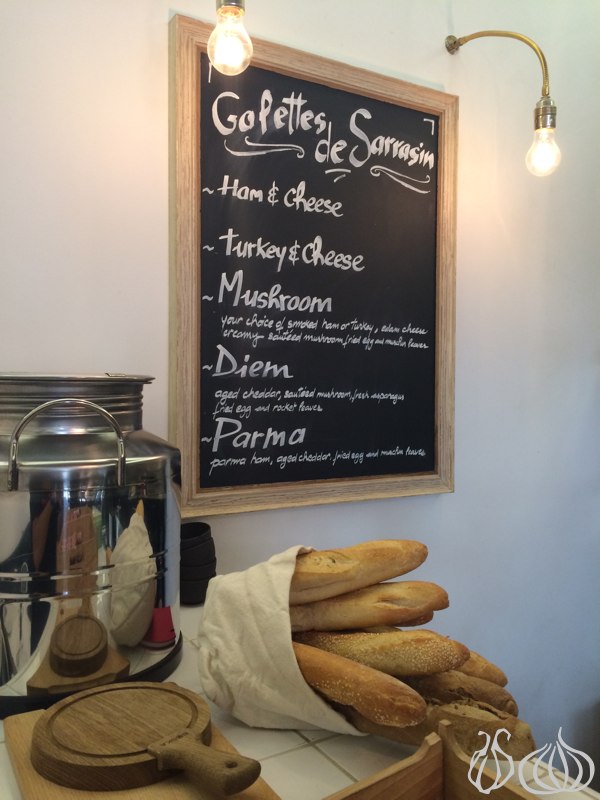 Galettes
de Sarrasin
~ Ham & Cheese
~ Turkey & Cheese
~ Mushroom
your choice of smoked ham or turkey, edam cheese
creamy sautéed mushroom, fried egg and muslin leaves
~ Diem
aged cheddar, sautéed mushroom, fresh asparagus
fried egg and rocket leaves
~ Parma
parma ham, aged cheddar. fried egg and muslin leaves